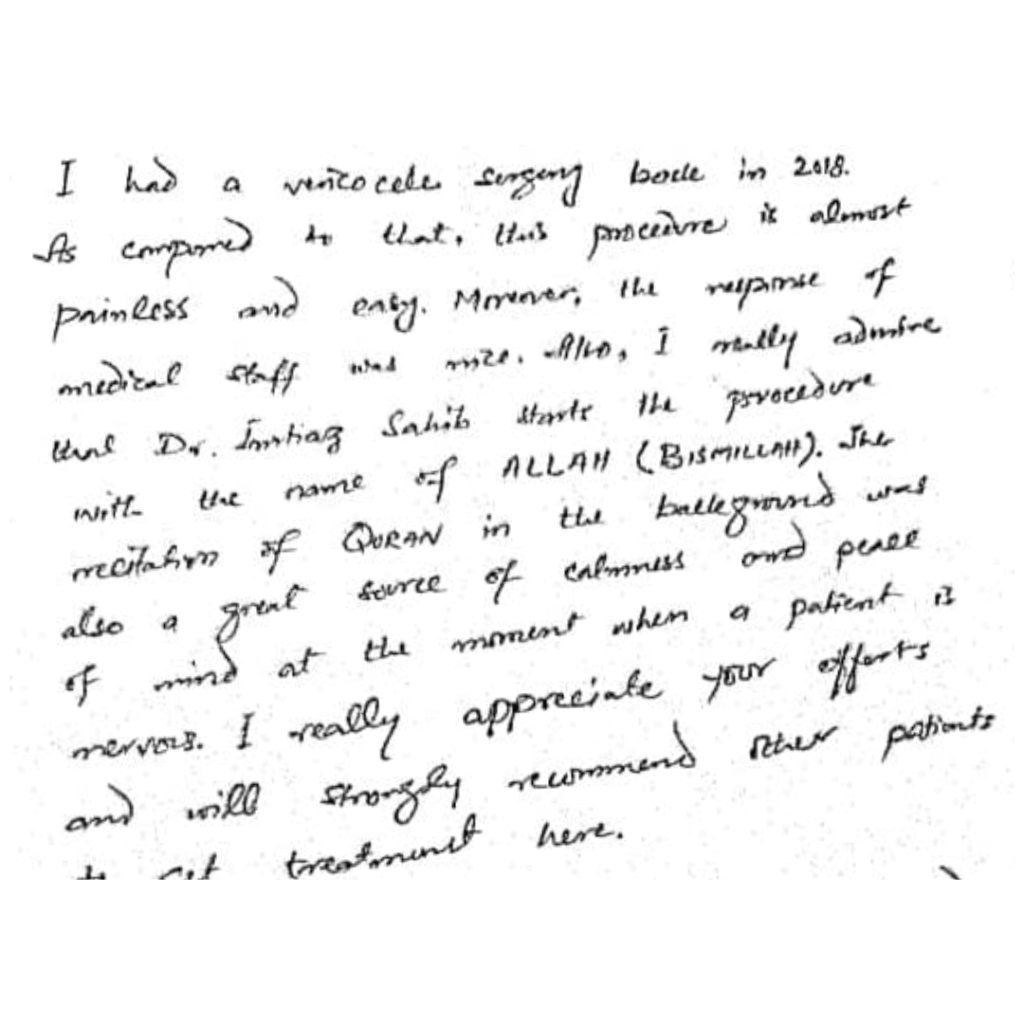 I had a vericocele surgery back in 2018.
As compared to that, this procedure is almost
painless and easy. Moreover, the response of
medical staff was nice. Also, I really admire
that Dr. Imtiaz Sahib starts the procedure
with the name of ALLAH (BISMILLAH). The
recitation of QURAN in the background was
also a great source of calmness and peace
of mind at the moment when a patient is
nervous. I really appreciate your efforts
and will strongly recommend other patients
to get treatment here.